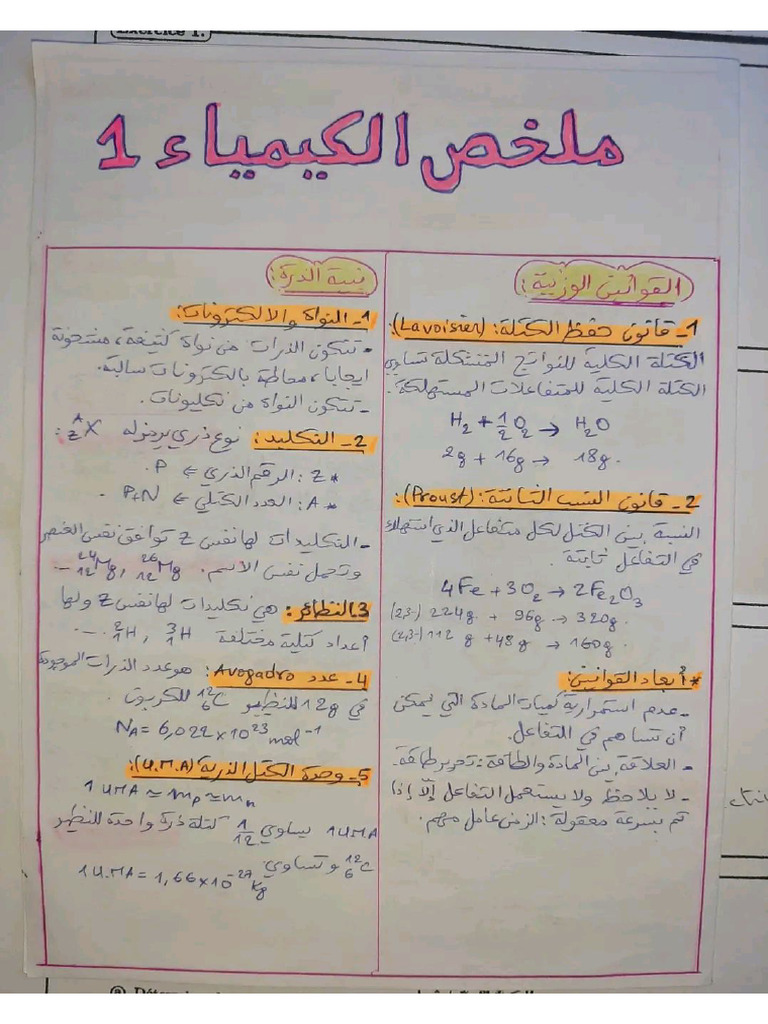 Exercice 1.
ملخص الكيمياء 1
القوانين الوزنية:
1- قانون حفظ الكتلة: (Lavoisier):
الكتلة الكلية للنواتج المتشكلة تساوي
الكتلة الكلية للمتفاعلات المستهلكة.
H₂ + 1/2 O₂ → H₂O
2g + 16g → 18g.
2- قانون النسب الثابتة: (Proust):
النسبة بين الكتل لكل متفاعل الذي استهلاك
في التفاعل ثابتة.
4Fe + 3O₂ → 2Fe₂O₃
(2,3-) 224g + 96g → 320g.
(2,3-) 112g + 48g → 160g.
* أبعاد القوانين:
- عدم استمرارية كميات المادة التي يمكن
أن تساهم في التفاعل.
- العلاقة بين المادة والطاقة: تحرير طاقة.
- لا يلاحظ ولا يستعمل التفاعل إلاّ إذا
تم بسرعة معقولة: الزمن عامل مهم.
بنية الذرة:
1- النواة والالكترونات:
- تتكون الذرات من نواة كثيفة، مشحونة
ايجابا، محاطة بالكترونات سالبة.
- تتكون النواة من نكليونات.
2- النكليد: نوع ذري يرمز له ᴬ_Z X :
* Z: الرقم الذري ⇐ P.
* A: العدد الكتلي ⇐ P+N.
- النكليدات لها نفس Z توافق نفس العنصر
وتحمل نفس الاسم. ²⁴₁₂Mg, ²⁶₁₂Mg ...
3. النظائر: هي نكليدات لها نفس Z ولها
أعداد كتلية مختلفة ³₁H, ²₁H ...
4- عدد Avogadro: هو عدد الذرات الموجودة
في 12g للنظير ¹²₆C للكربون.
NA = 6,022×10²³ mol⁻¹
5- وحدة الكتل الذرية (U.M.A):
1 UMA ≈ mp ≈ mn
1UMA يساوي 1/12 كتلة ذرة واحدة للنظير
¹²₆C وتساوي:
1U.MA = 1,66×10⁻²⁷ Kg